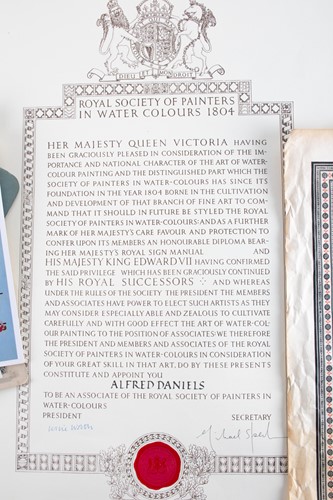 DIEU ET MON DROIT
ROYAL SOCIETY OF PAINTERS
IN WATER COLOURS 1804
HER MAJESTY QUEEN VICTORIA HAVING
BEEN GRACIOUSLY PLEASED IN CONSIDERATION OF THE IM-
PORTANCE AND NATIONAL CHARACTER OF THE ART OF WATER-
COLOUR PAINTING AND THE DISTINGUISHED PART WHICH THE
SOCIETY OF PAINTERS IN WATER-COLOURS HAS SINCE ITS
FOUNDATION IN THE YEAR 1804 BORNE IN THE CULTIVATION
AND DEVELOPMENT OF THAT BRANCH OF FINE ART TO COM-
MAND THAT IT SHOULD IN FUTURE BE STYLED THE ROYAL
SOCIETY OF PAINTERS IN WATER-COLOURS: AND AS A FURTHER
MARK OF HER MAJESTY'S CARE FAVOUR AND PROTECTION TO
CONFER UPON ITS MEMBERS AN HONOURABLE DIPLOMA BEAR-
ING HER MAJESTY'S ROYAL SIGN MANUAL AND
HIS MAJESTY KING EDWARD VII HAVING CONFIRMED
THE SAID PRIVILEGE WHICH HAS BEEN GRACIOUSLY CONTINUED
BY HIS ROYAL SUCCESSORS AND WHEREAS
UNDER THE RULES OF THE SOCIETY THE PRESIDENT THE MEMBERS
AND ASSOCIATES HAVE POWER TO ELECT SUCH ARTISTS AS THEY
MAY CONSIDER ESPECIALLY ABLE AND ZEALOUS TO CULTIVATE
CAREFULLY AND WITH GOOD EFFECT THE ART OF WATER-COL-
OUR PAINTING TO THE POSITION OF ASSOCIATES: WE THEREFORE
THE PRESIDENT AND MEMBERS AND ASSOCIATES OF THE ROYAL
SOCIETY OF PAINTERS IN WATER-COLOURS IN CONSIDERATION
OF YOUR GREAT SKILL IN THAT ART, DO BY THESE PRESENTS
CONSTITUTE AND APPOINT YOU
ALFRED DANIELS
TO BE AN ASSOCIATE OF THE ROYAL SOCIETY OF PAINTERS IN
WATER-COLOURS
PRESIDENT SECRETARY
Michael